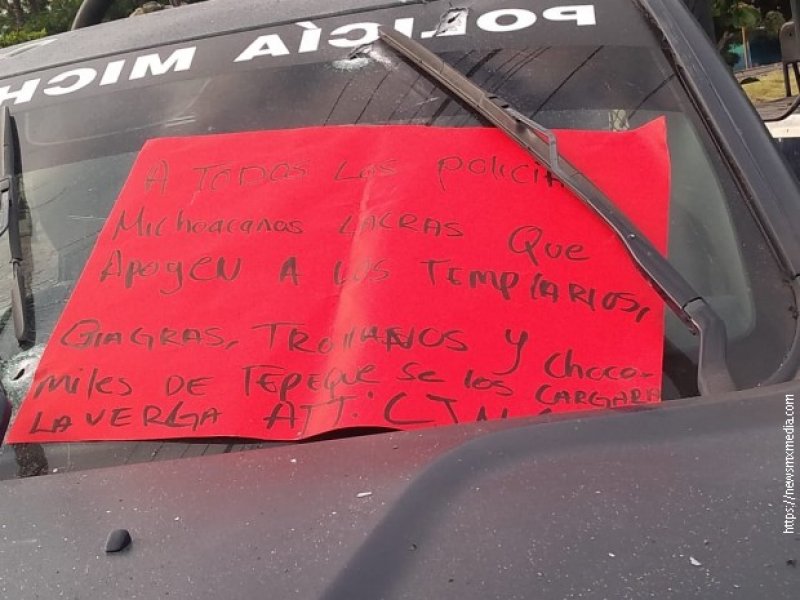 POLICÍA MICH
A TODOS LOS POLICIA
Michoacanas LACRAS Que
ApogeN A LOS TEMPLARIOS,
GIAGRAS, TROYANOS y choco-
miles DE TEPEQUE se los CARGARA
LA VERGA ATT: CJN
https://newsmxmedia.com